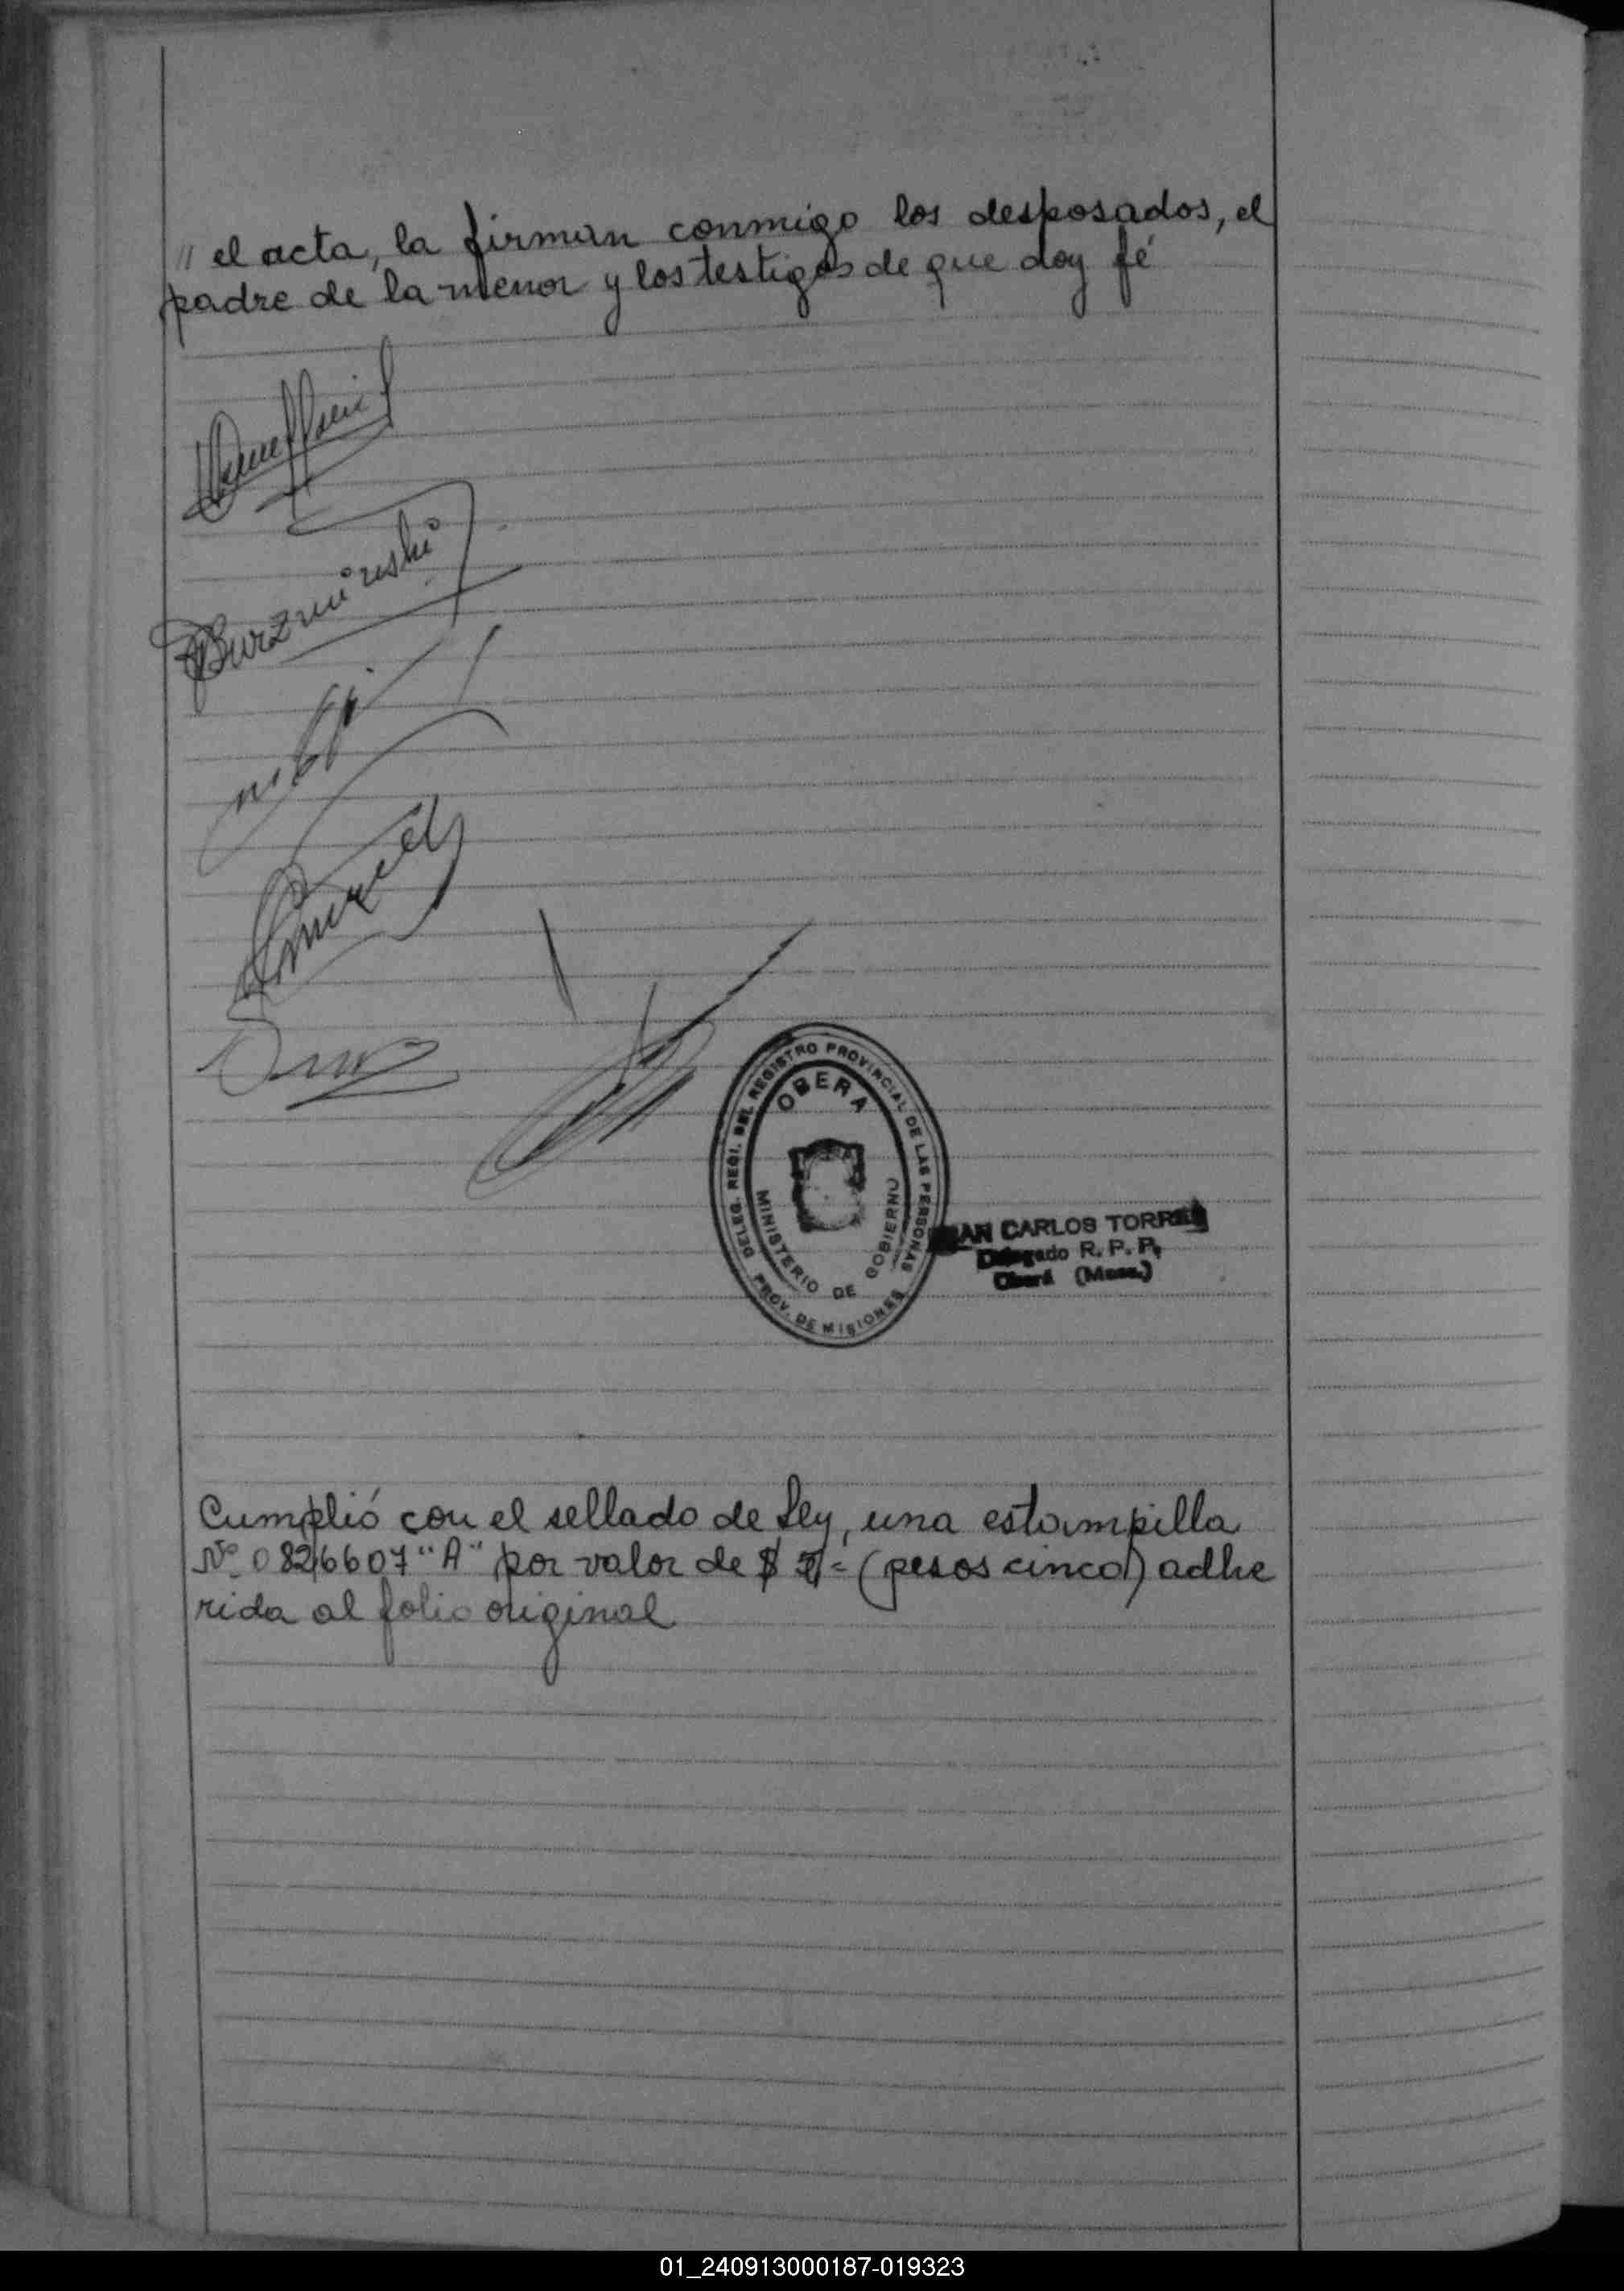 " el acta, la firman conmigo los desposados, el
padre de la menor y los testigos de que doy fé
Burzminski
DELEG. REGI. DEL REGISTRO PROVINCIAL DE LAS PERSONAS
OBERA
MINISTERIO DE GOBIERNO
PROV. DE MISIONES
CARLOS TORRES
Delegado R. P. P.
Oberá (Mnes.)
Cumplió con el sellado de Ley, una estampilla
Nº 0826607 "A" por valor de $ 5= (pesos cinco) adhe
rida al folio original
01_240913000187-019323